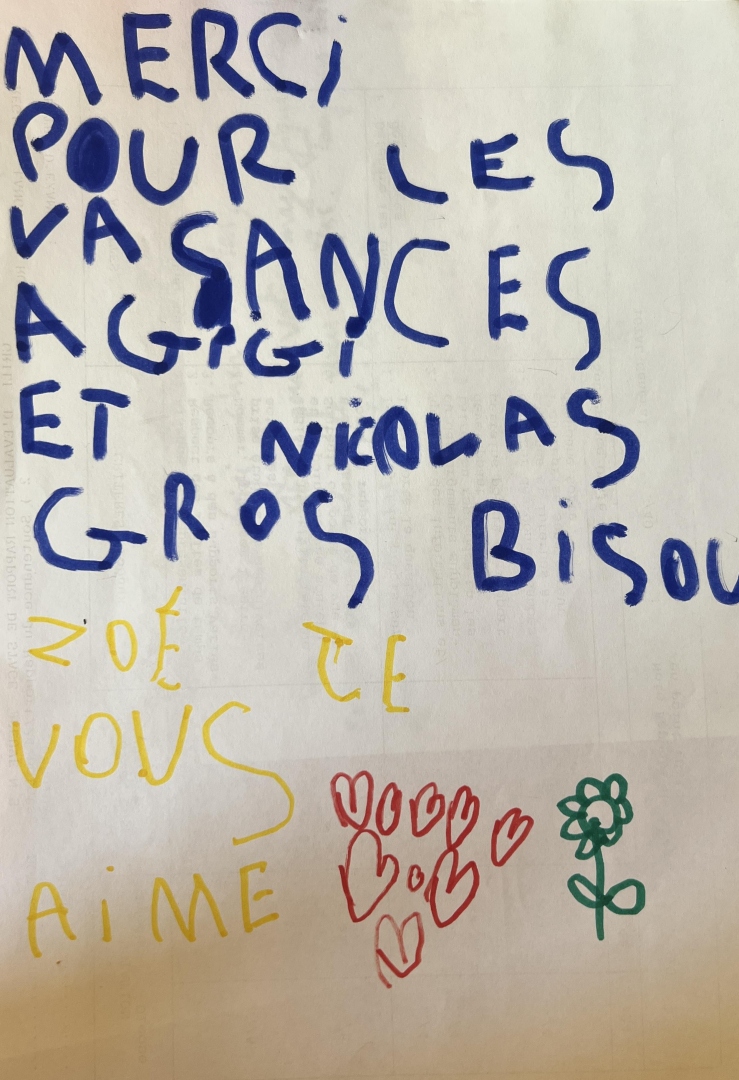 MERCi
POUR LES
VASANCES
A GiGi
ET NiCOLAS
GROS BiSOU
ZOÉ JE
VOUS
AiME